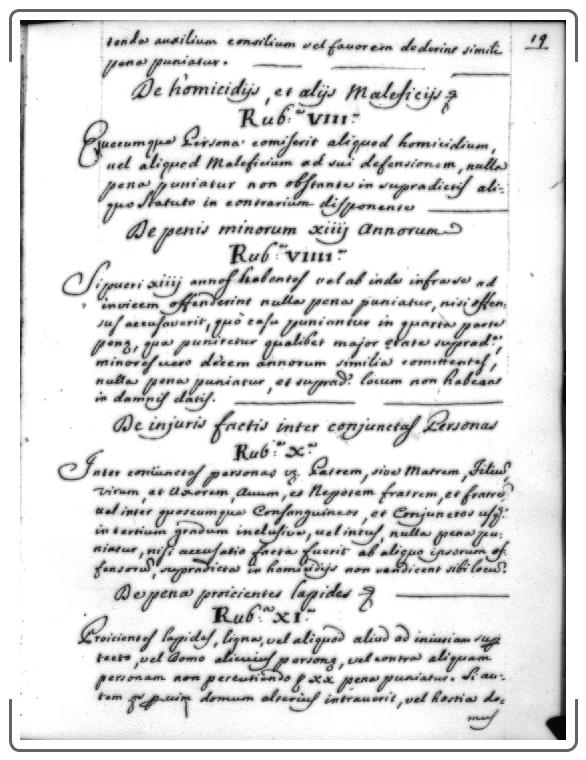 19
tenda auxilium consilium vel favorem dederint simili
pena puniatur.
De homicidijs, et alijs Maleficijs
Rub.ª VIII.ª
Quecumque Persona comiserit aliquod homicidium,
vel aliquod Maleficium ad sui defensionem, nulla
pena puniatur non obstante in supradictis ali-
quo statuto in contrarium disponente
De penis minorum xiiij Annorum
Rub.ª VIIII.ª
Si pueri xiiij annos habentes vel ab inde infra se ad
invicem offenderint nulla pena puniatur, nisi offen-
sus accusaverit, quo casu puniantur in quarta parte
penę, qua puniretur qualibet major ętate suprad.ª,
minores vero decem annorum similia comittentes,
nulla pena puniatur, et suprad.ª locum non habeant
in damnis datis.
De injuris factis inter conjunctas Personas
Rub.ª X.ª
Inter coniunctas personas vz. Patrem, sive Matrem, Filiũ,
virum, et Uxorem, Avum, et Nepotem fratrem, et fratrẽ
vel inter quoscumque Consanguineos, et Conjunctos usq.
in tertium gradum inclusive, vel intus, nulla pena pu-
niatur, nisi accusatio facta fuerit ab aliquo ipsorum of-
fensorũ, supradicta in homicidijs non vendicent sibi locũ.
De pena proicientes lapides
Rub.ª XI.ª
Proicientes lapides, ligna, vel aliquod aliud ad iniuriam
tecto, vel Domo alicuius personę, vel contra aliquam
personam non percutiendo p xx pena puniatur. Si au-
tem domum alterius intraverit, vel hostia do-
mus